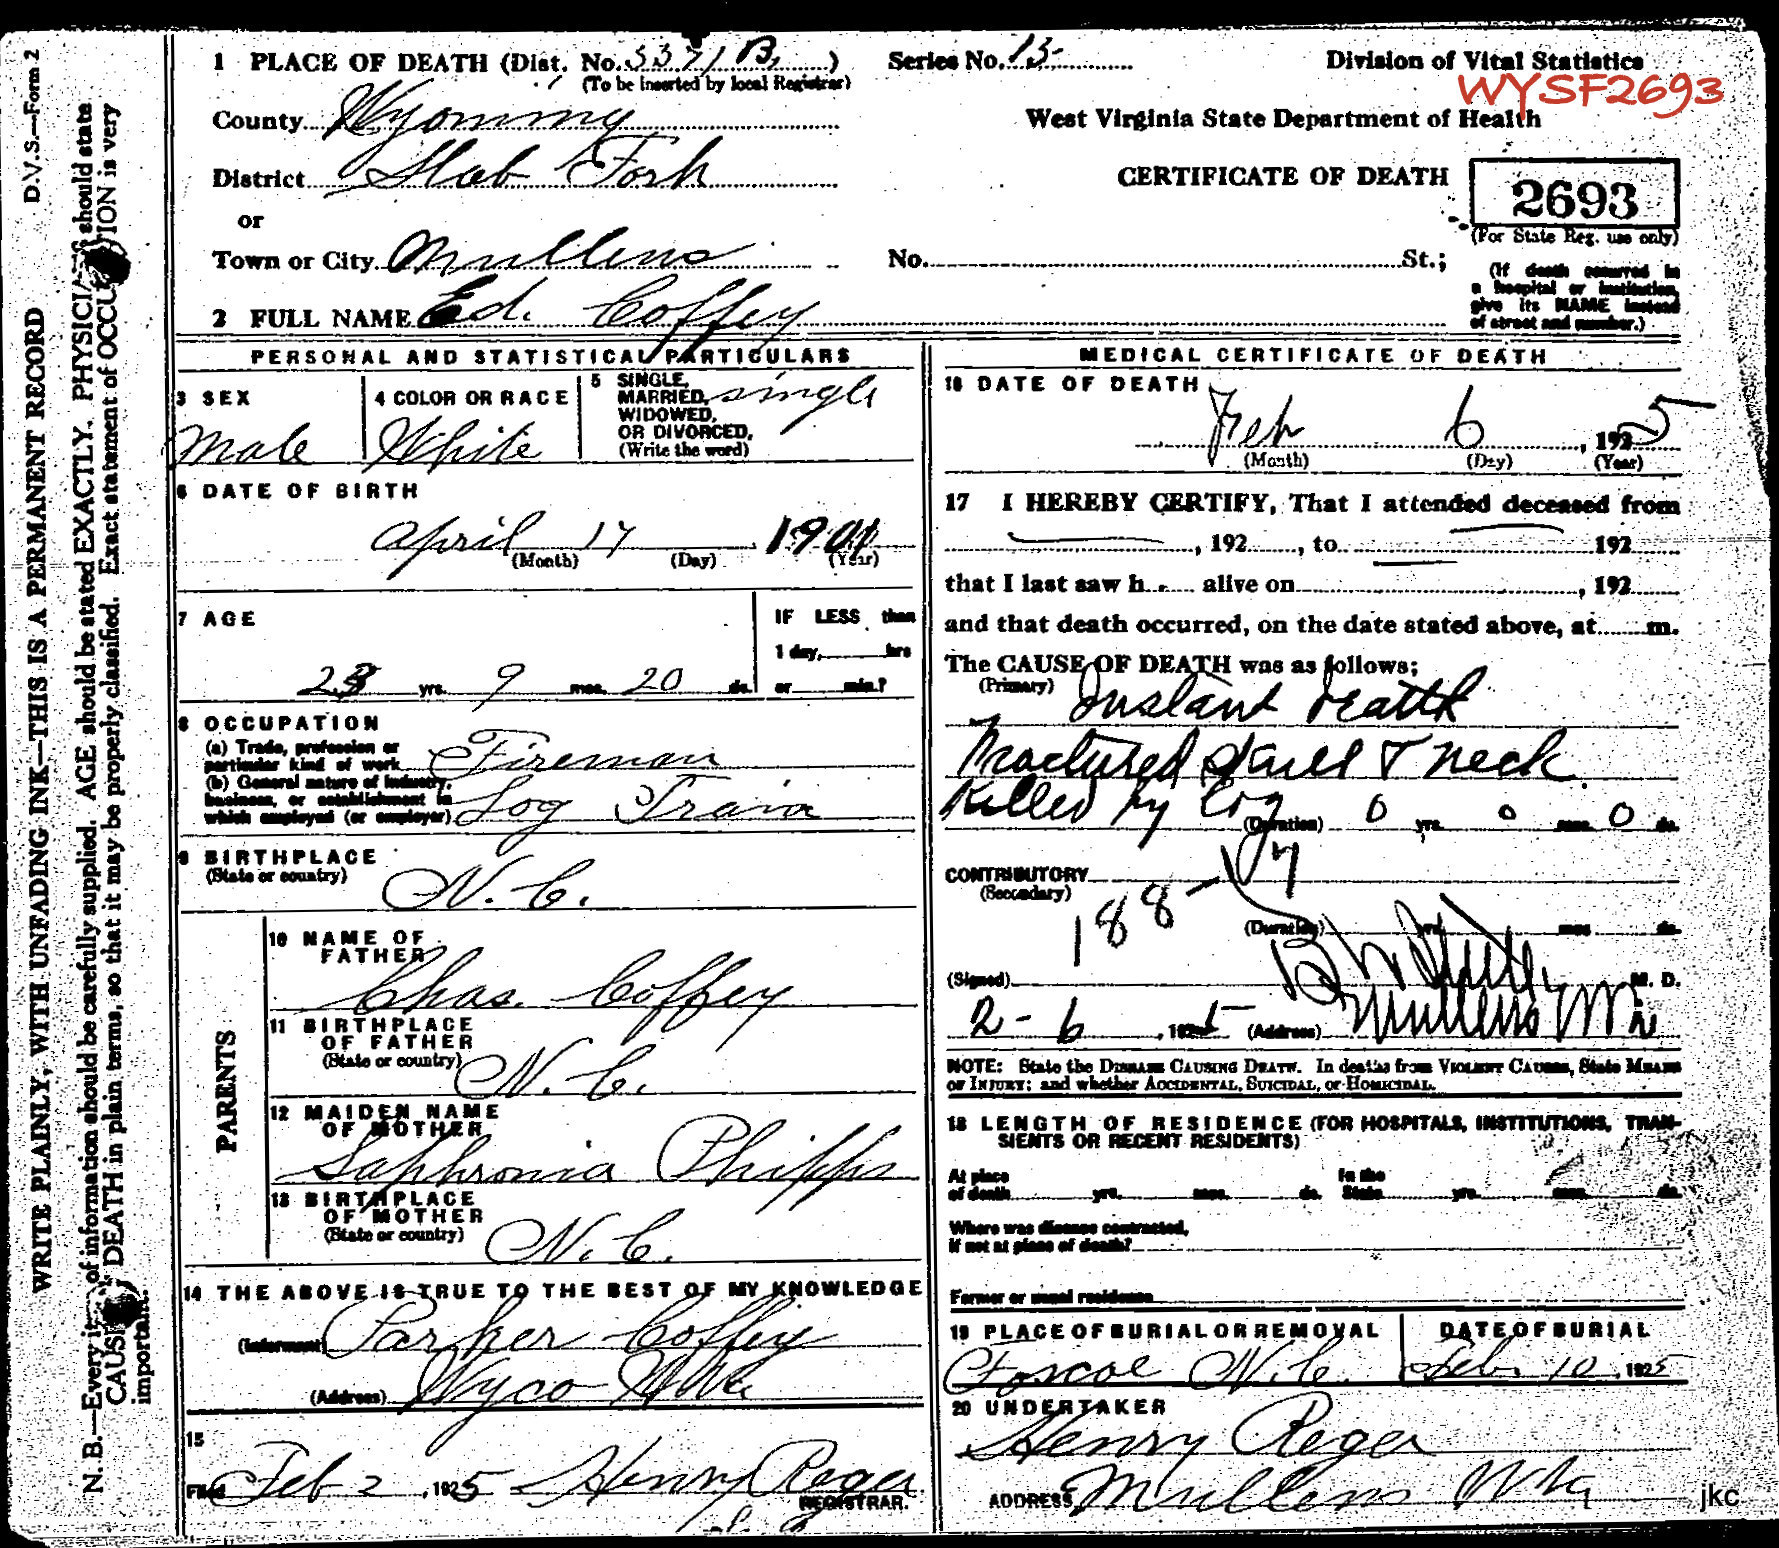 D.V.S.—Form 2
WRITE PLAINLY, WITH UNFADING INK—THIS IS A PERMANENT RECORD
N. B.—Every of information should be carefully supplied. AGE should be stated EXACTLY. PHYSICIANS should state
CAUSE DEATH in plain terms, so that it may be properly classified. Exact statement of OCCUPATION is very
important.
1 PLACE OF DEATH (Dist. No. 5371 B. )
(To be inserted by local Registrar)
County Wyoming
District Slab Fork
or
Town or City Mullens
2 FULL NAME Ed. Coffey
Series No. 15
Division of Vital Statistics
WYSF2693
West Virginia State Department of Health
CERTIFICATE OF DEATH
2693
(For State Reg. use only)
No. St.;
(If death occurred in
a hospital or institution,
give its NAME instead
of street and number.)
PERSONAL AND STATISTICAL PARTICULARS
3 SEX
Male
4 COLOR OR RACE
White
5 SINGLE,
MARRIED,
WIDOWED,
OR DIVORCED,
(Write the word)
single
6 DATE OF BIRTH
April 17 1901
(Month) (Day) (Year)
7 AGE
23 yrs. 9 mos. 20 ds.
IF LESS than
1 day, hrs
or min.?
8 OCCUPATION
(a) Trade, profession or
particular kind of work Fireman
(b) General nature of industry,
business, or establishment in
which employed (or employer) Log Train
9 BIRTHPLACE
(State or country)
N. C.
PARENTS
10 NAME OF
FATHER
Chas. Coffey
11 BIRTHPLACE
OF FATHER
(State or country) N. C.
12 MAIDEN NAME
OF MOTHER
Saphronia Phipps
13 BIRTHPLACE
OF MOTHER
(State or country) N. C.
14 THE ABOVE IS TRUE TO THE BEST OF MY KNOWLEDGE
(Informant) Parker Coffey
(Address) Wyco W.Va.
15
Filed Feb 2, 1925 Henry Reger
REGISTRAR.
MEDICAL CERTIFICATE OF DEATH
16 DATE OF DEATH
Feb 6, 1925
(Month) (Day) (Year)
17 I HEREBY CERTIFY, That I attended deceased from
, 192 , to 192
that I last saw h alive on , 192
and that death occurred, on the date stated above, at m.
The CAUSE OF DEATH was as follows:
(Primary) Instant Death
Fractured Skull & Neck
Killed by Log
(Duration) 0 yrs. 0 mos. 0 ds.
CONTRIBUTORY
(Secondary)
188-
(Duration) yrs. mos. ds.
(Signed) M. D.
2-6, 1925 (Address) Mullens
NOTE: State the DISEASE CAUSING DEATH. In deaths from VIOLENT CAUSES, State MEANS
OF INJURY; and whether ACCIDENTAL, SUICIDAL, or HOMICIDAL.
18 LENGTH OF RESIDENCE (FOR HOSPITALS, INSTITUTIONS, TRAN-
SIENTS OR RECENT RESIDENTS)
At place
of death yrs. mos. ds.
In the
State yrs. mos. ds.
Where was disease contracted,
If not at place of death?
Former or usual residence
19 PLACE OF BURIAL OR REMOVAL
Foscoe N. C.
DATE OF BURIAL
Feb. 10, 1925
20 UNDERTAKER
Henry Reger
ADDRESS Mullens W Va
jkc